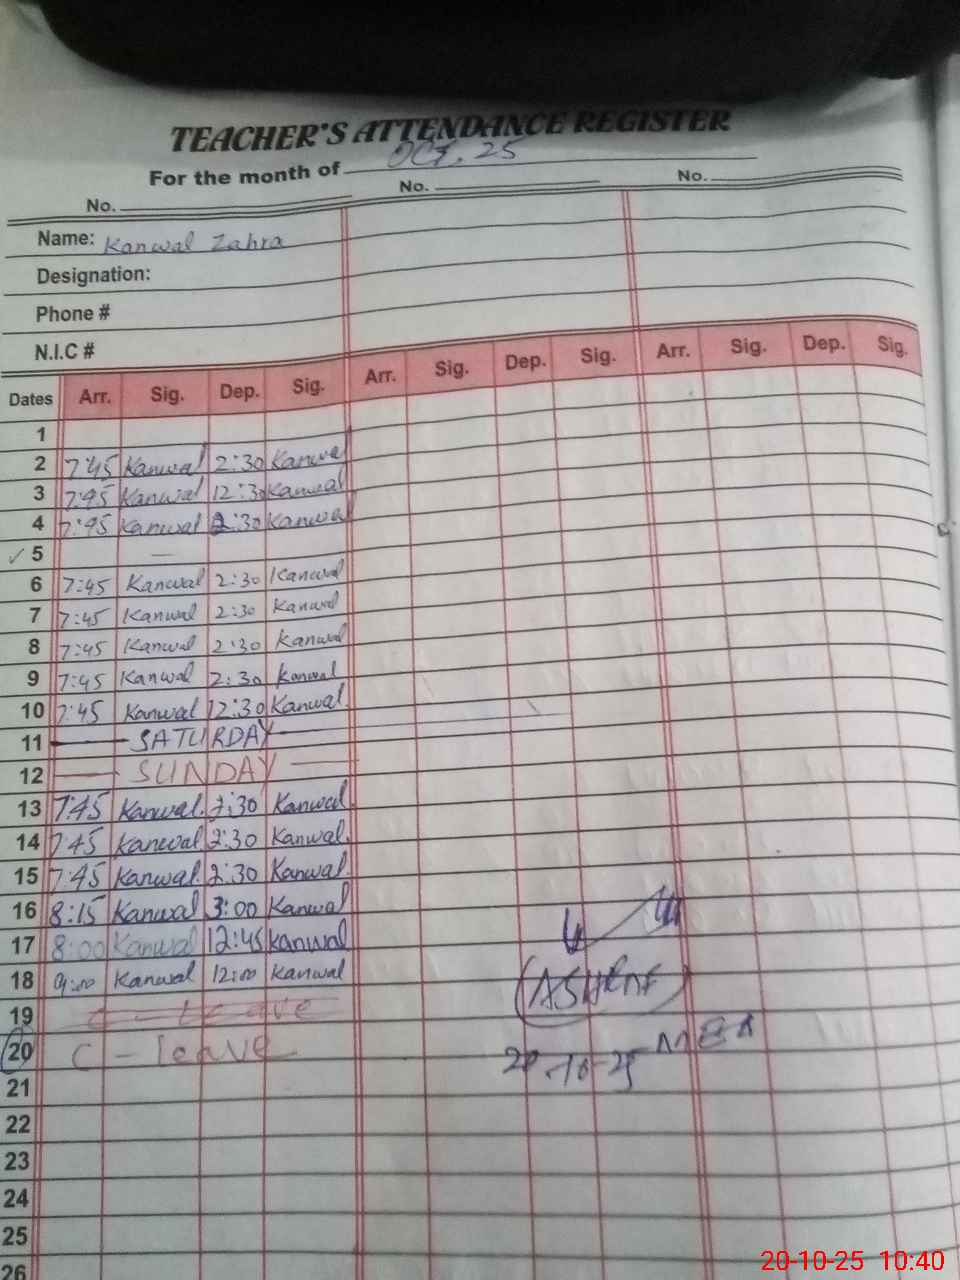 TEACHER'S ATTENDANCE REGISTER
For the month of OCT. 25
No. No. No.
Name: Kanwal Zahra
Designation:
Phone #
N.I.C #
Dates Arr. Sig. Dep. Sig. Arr. Sig. Dep. Sig. Arr. Sig. Dep. Sig.
1
2 7:45 Kanwal 2:30 Kanwal
3 7:45 Kanwal 12:30 Kanwal
4 7:45 Kanwal 2:30 Kanwal
✓ 5 —
6 7:45 Kanwal 2:30 Kanwal
7 7:45 Kanwal 2:30 Kanwal
8 7:45 Kanwal 2:30 Kanwal
9 7:45 Kanwal 2:30 Kanwal
10 7:45 Kanwal 12:30 Kanwal
11 — SATURDAY —
12 — SUNDAY —
13 7:45 Kanwal. 2:30 Kanwal
14 7:45 Kanwal 2:30 Kanwal.
15 7:45 Kanwal. 2:30 Kanwal.
16 8:15 Kanwal 3:00 Kanwal
17 8:00 Kanwal 12:45 Kanwal
18 9:00 Kanwal 12:00 Kanwal
(ASHRAF)
19 C - Leave
20 C - leave
MEA
20-10-25
21
22
23
24
25
26
20-10-25 10:40